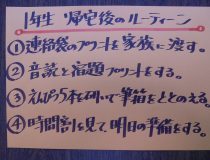 1年生 帰宅後のルーティーン
①連絡袋のプリントを家族に渡す。
②音読と宿題プリントをする。
③えんぴつ5本を研いで筆箱をととのえる。
④時間割を見て、明日の準備をする。